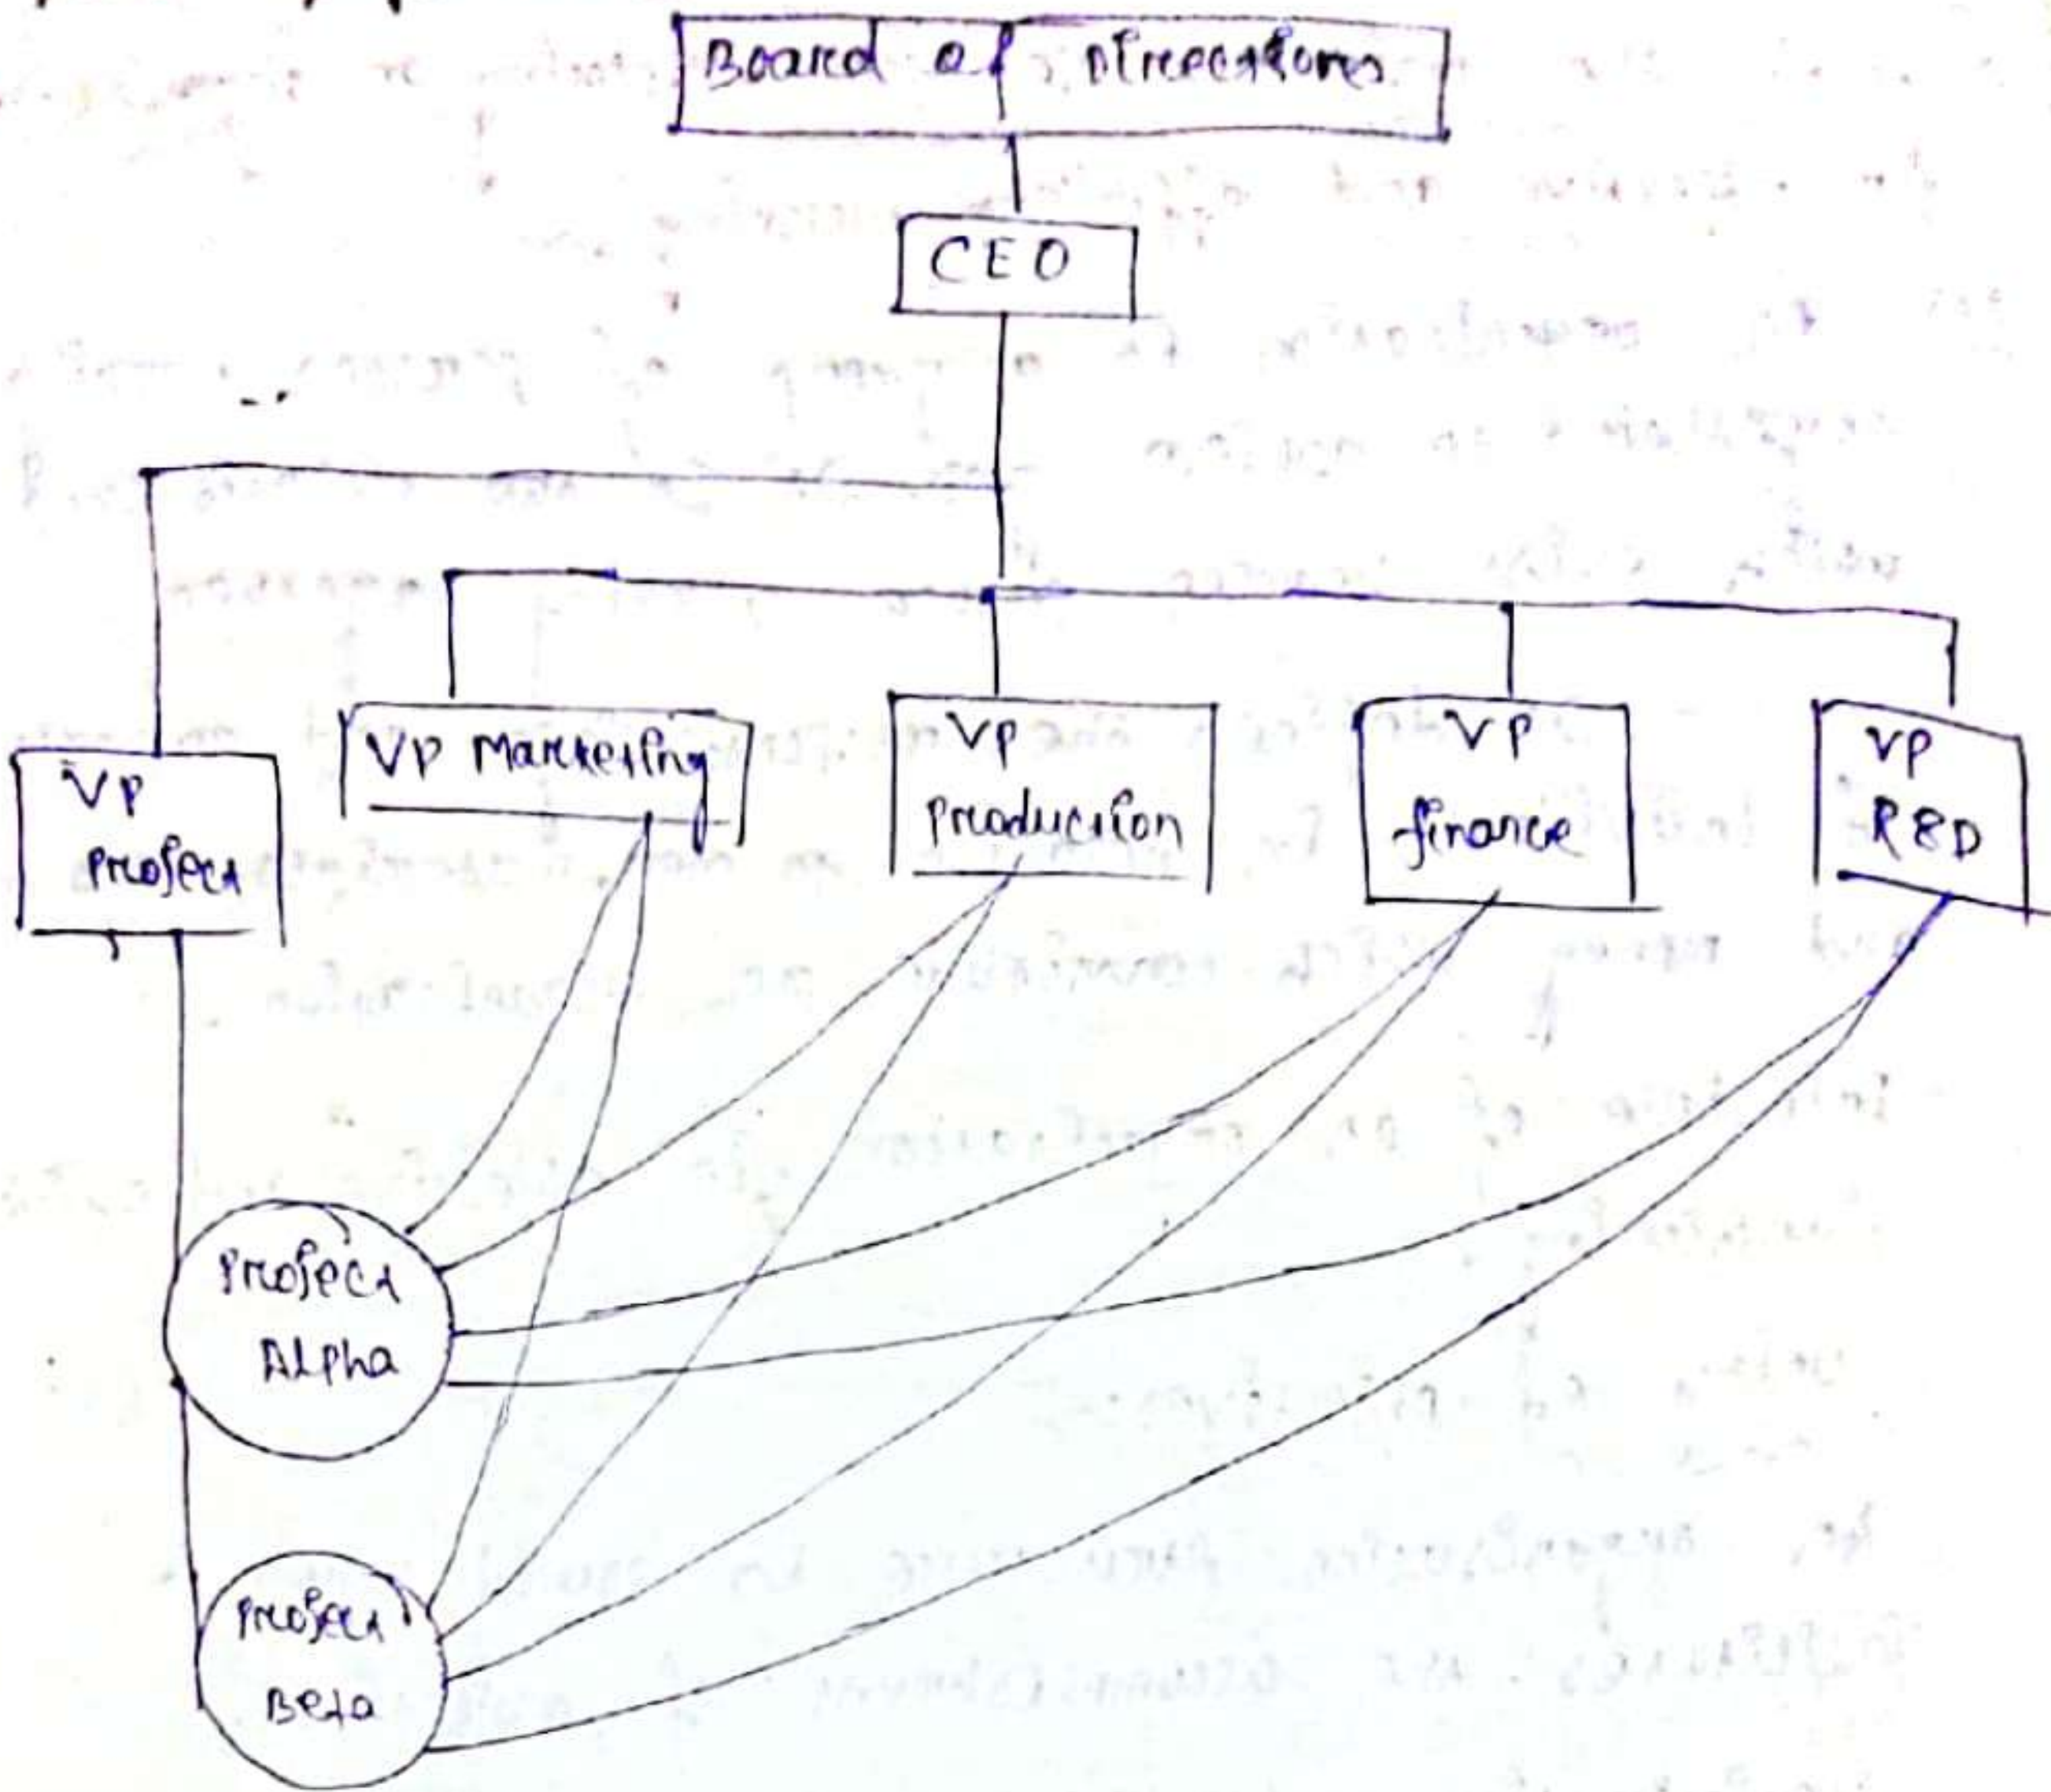 Board of Directors
CEO
VP
Project
VP Marketing
VP
Production
VP
finance
VP
R&D
Project
Alpha
Project
Beta